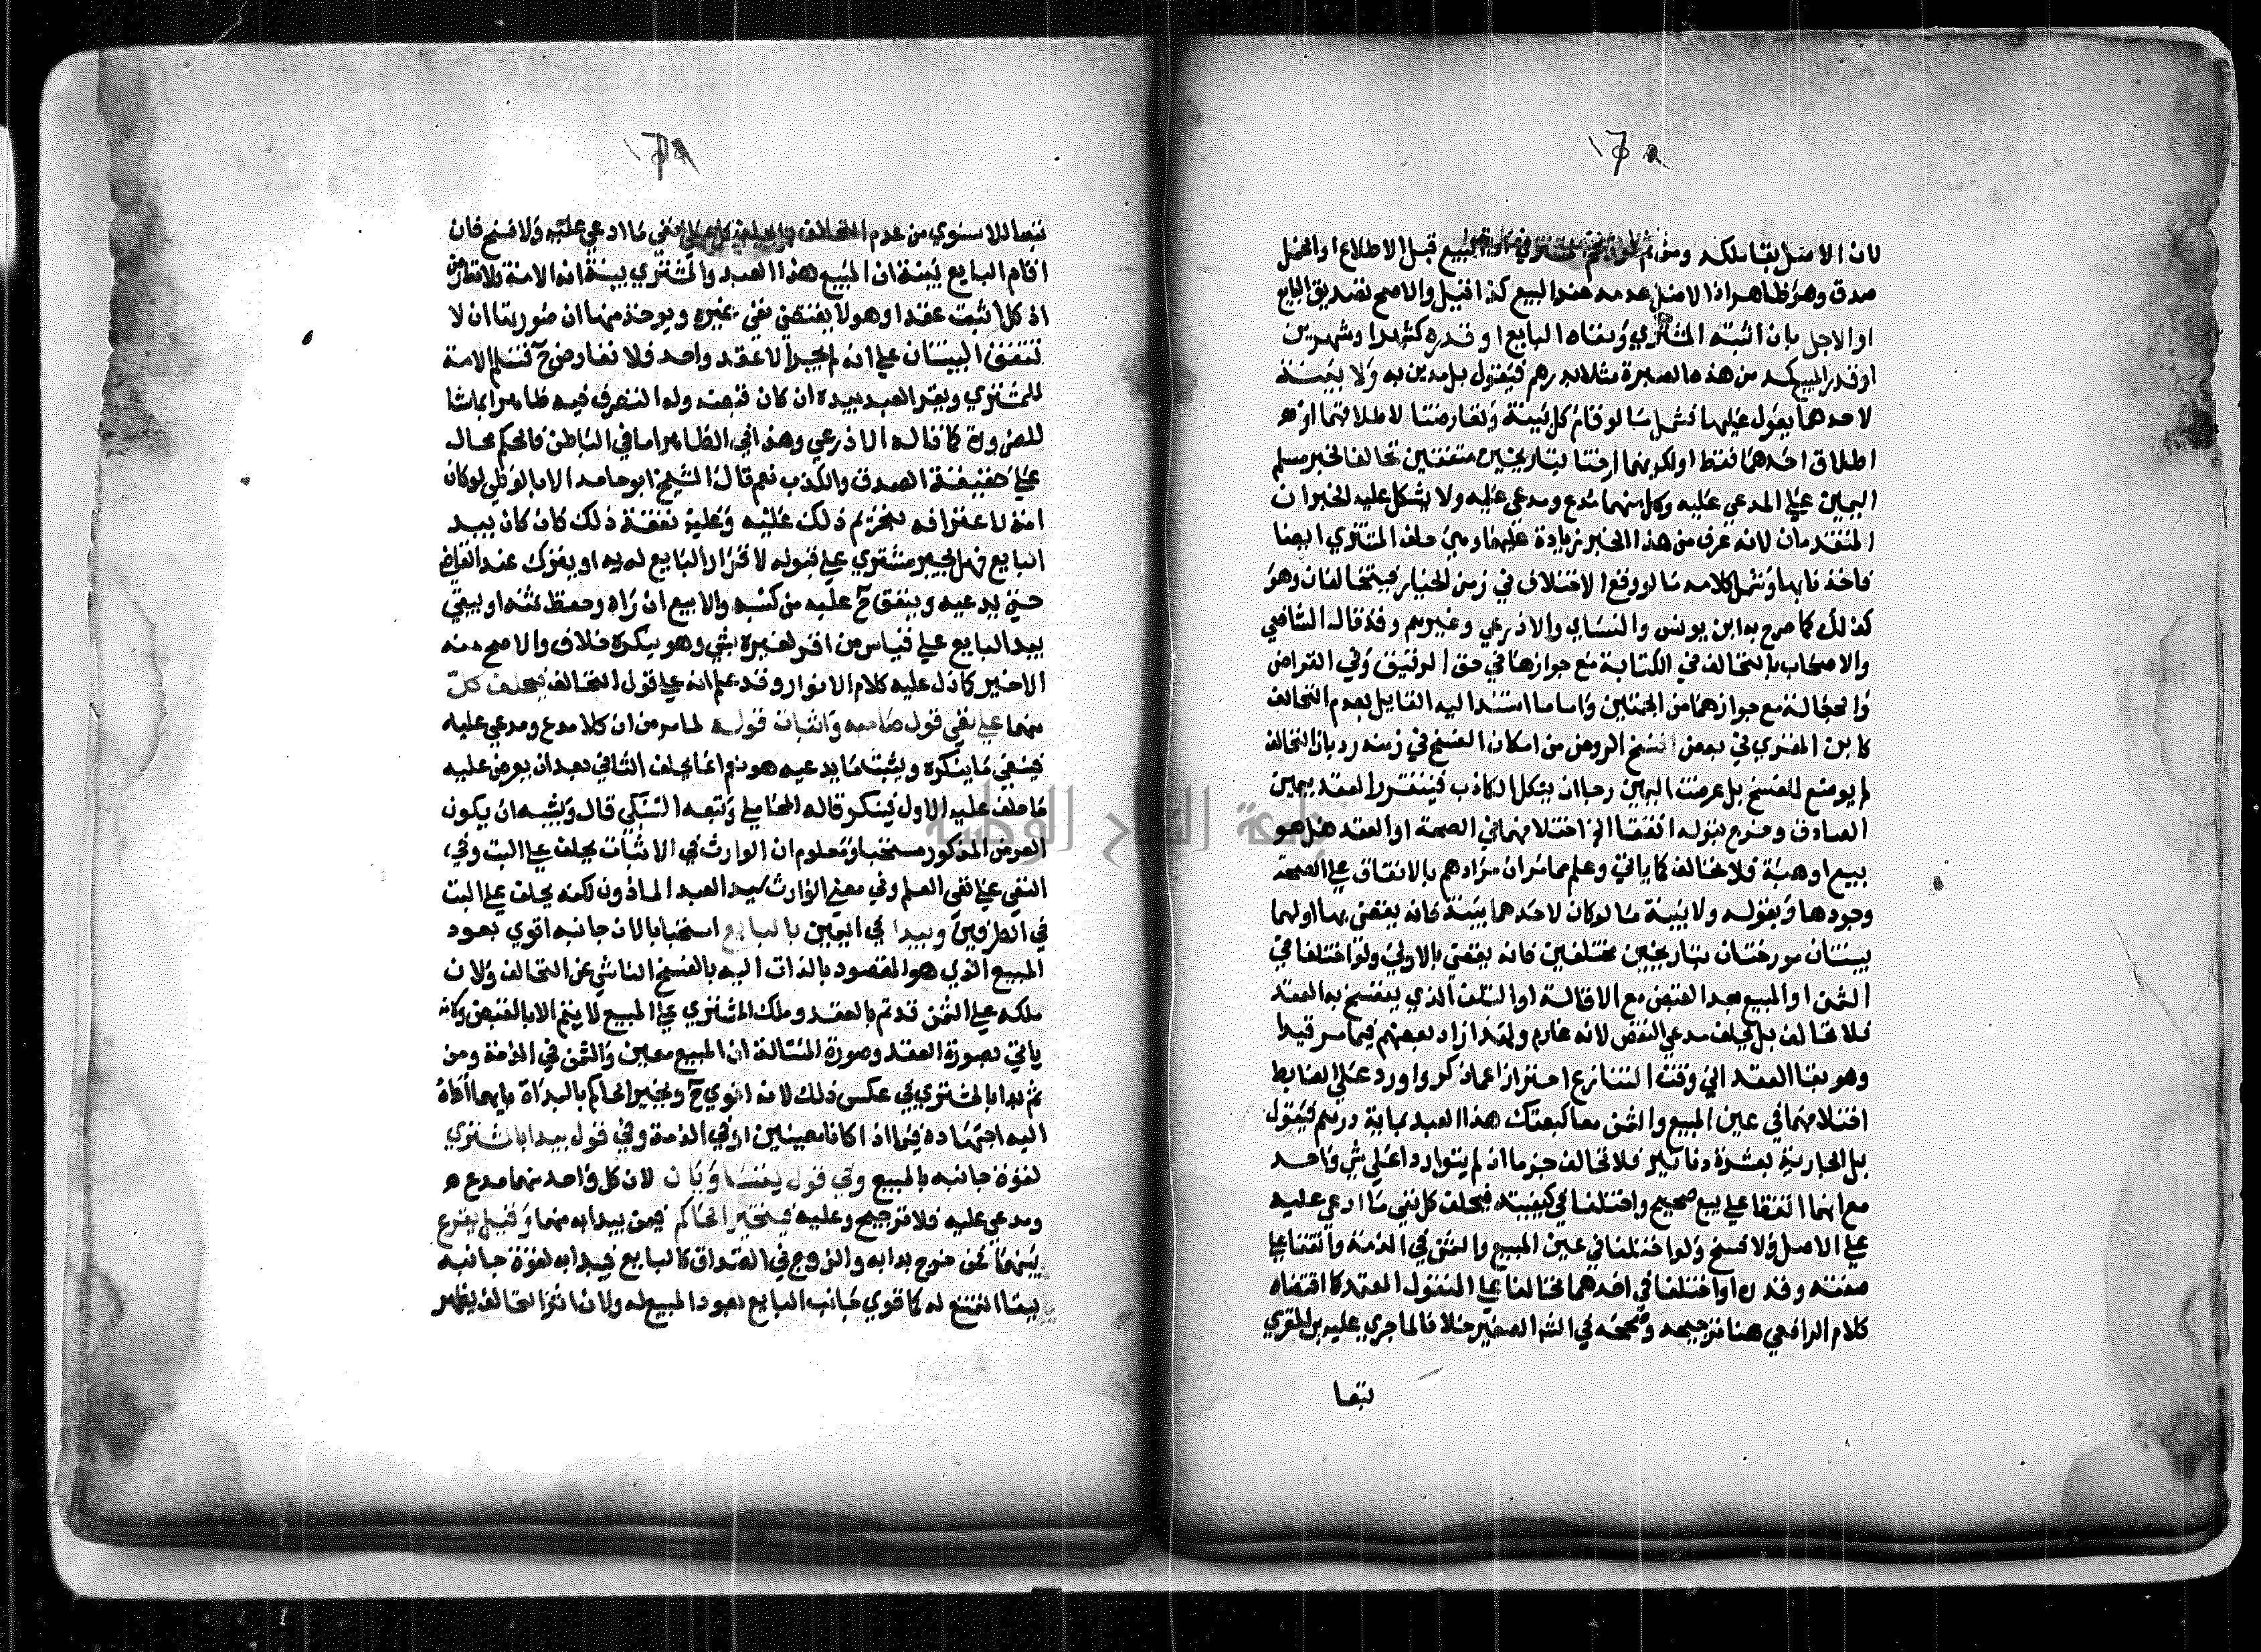 ١٦٨
لان الاصل بقا ملكه ومن ثم لو المشتري المبيع قبل الاطلاع او الحمل
صدق وهو ظاهر اذ الاصل عدمه عند البيع كذا قيل والاصح تصديق البايع
او الاجل بان اثبته المشتري ونفاه البايع او قدره كشهر او شهرين
او قدر المبيع كمد من هذه الصبرة مثلا بدرهم فيقول بل مدين به ولا بينة
لاحدهما يعول عليها فشمل ما لو قام كل بينة وتعارضتا لاطلاقهما او
اطلاق احدهما فقط او لكونهما ارختا بتاريخين متفقين تحالفا لخبر مسلم
اليمين علي المدعي عليه وكل منهما مدع ومدعي عليه ولا يشكل عليه الخبران
المتقدمان لانه عرف من هذا الخبر زيادة عليهما وهي حلف المشتري ايضا
فاخذنا بها وشمل كلامه ما لو وقع الاختلاف في زمن الخيار فيتحالفان وهو
كذلك كما صرح به ابن يونس والنساي والاذرعي وغيرهم وقد قال الشافعي
والاصحاب بالتحالف في الكتابة مع جوازها في حق الرقيق وفي القراض
والجعالة مع جوازهما من الجهتين واما ما استند اليه القايل بعدم التحالف
كابن المقري في بعض نسخ الروض من امكان الفسخ في زمنه رد بان التحالف
لم يوضع للفسخ بل عرضت اليمين رجا ان ينكل الكاذب فيتقرر العقد بيمين
الصادق وخرج بقوله اتفقا الخ اختلافهما في الصحة او العقد هل هو
بيع او هبة فلا تحالف كما ياتي وعلم مما مر ان مرادهم بالاتفاق علي الصحة
وجودها وبقوله ولا بينة ما لو كان لاحدهما بينة فانه يقضي بها او لهما
بينتان مورختان بتاريخين مختلفين فانه يقضي بالاولي ولو اختلفا في
الثمن او المبيع بعد القبض مع الاقالة او التلف الذي ينفسخ به العقد
فلا تحالف بل يحلف مدعي النقص لانه غارم ولهذا زاد بعضهم فيما مر قيدا
وهو بقا العقد الي وقت التنازع احترازا عما ذكر واورد علي الضابط
اختلافهما في عين المبيع والثمن معا كبعتك هذا العبد بماية درهم فيقول
بل الجارية بعشرة دنانير فلا تحالف جزما ان لم يتواردا علي شي واحد
مع انهما اتفقا علي بيع صحيح واختلفا في كيفيته فيحلف كل نفي ما ادعي عليه
علي الاصل ولا فسخ ولو اختلفا في عين المبيع والثمن في الذمة واتفقا علي
صفته وقدره او اختلفا في احدهما تحالفا علي المنقول المعتمد كما اقتضاه
كلام الرافعي هنا ترجيحه وصححه في الشرح الصغير خلافا لما جري عليه بن المقري
تبعا
١٦٨
تبعا للاسنوي من عدم التحالف بل يحلف كل علي نفي ما ادعي عليه ولا فسخ فان
اقام البايع بينة ان المبيع هذا العبد والمشتري بينة انه الامة فلا تعارض
اذ كل اثبت عقدا وهو لا يقتضي نفي غيره ويوخذ منه ان صورتها ان لا
تتفق البينتان علي انه لم يجر الا عقد واحد فلا تعارض ح فتسلم الامة
للمشتري ويقر العبد بيده ان كان قبضه وله التصرف فيه ظاهرا بما شا
للضرورة كما قاله الاذرعي وهذا في الظاهر اما في الباطن فالحكم محال
علي حقيقة الصدق والكذب نعم قال الشيخ ابو حامد الا بالوطي لو كان
امة لاعترافه بتحريم ذلك عليه وعليه نفقة ذلك كان كان بيد
البايع فهل يجبر مشتري علي قبوله لاقرار البايع له به او يترك عند القاضي
حتي يدعيه وينفق ح عليه من كسبه والا بيع ان راه وحفظ ثمنه او يبقي
بيد البايع علي قياس من اقر لغيره بشي وهو ينكره خلاف والاصح منه
الاخير كما دل عليه كلام الانوار وقد علم انه علي قول التحالف يحلف كل
منهما علي نفي قول صاحبه واثبات قوله لما مر من ان كلا مدع ومدعي عليه
فينفي ما ينكره ويثبت ما يدعيه هو نعم انما يحلف الثاني بعد ان يعرض عليه
ما حلف عليه الاول فينكر قاله المحاملي وتبعه السبكي قال ويشبه ان يكون
العرض المذكور مستحبا ومعلوم ان الوارث في الاثبات يحلف علي البت وفي
النفي علي نفي العلم وفي معني الوارث سيد العبد الماذون لكنه يحلف علي البت
في الطرفين ويبدا في اليمين بالبايع استحبابا لان جانبه اقوي بعود
المبيع الذي هو المقصود بالذات اليه بالفسخ الناشي عن التحالف ولان
ملكه علي الثمن قد تم بالعقد وملك المشتري علي المبيع لا يتم الا بالقبض وكانه
ياتي بصورة العقد وصورة المسالة ان المبيع معين والثمن في الذمة ومن
ثم بدا بالمشتري في عكس ذلك لانه اقوي ح ويخير الحاكم بالبداة بايهما اداه
اليه اجتهاده فيما اذا كانا معينين او في الذمة وفي قول يبدا بالمشتري
لقوة جانبه بالمبيع وفي قول يتساويان لان كل واحد منهما مدع
ومدعي عليه فلا ترجيح وعليه فيتخير الحاكم فيمن يبدا به منهما وقيل يقرع
بينهما فمن خرج بدا به والزوج في الصداق كالبايع فيبدا به لقوة جانبه
ببقا التمتع له كما قوي جانب البايع بعود المبيع له ولان اثر التحالف يظهر